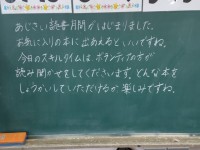 あじさい読書月間がはじまりました。
お気に入りの本に出あえるといいですね。
今日のスキルタイムは、ボランティアの方が
読み聞かせをしてくださいます。どんな本を
しょうかいしていただけるか楽しみですね。